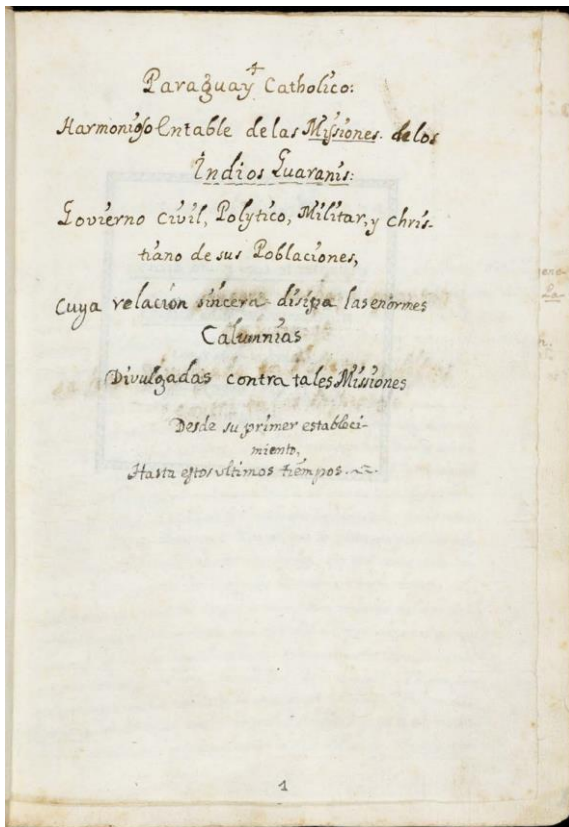 Paraguay Catholico:
Harmonioso Entable de las Missiones de los
Indios Guaranis:
Govierno Civil, Polytico, Militar, y Chris-
tiano de sus Poblaciones,
Cuya relación sincera disipa las enormes
Calumnias
Divulgadas contra tales Missiones
Desde su primer estableci-
miento,
Hasta estos ultimos tiempos.
1